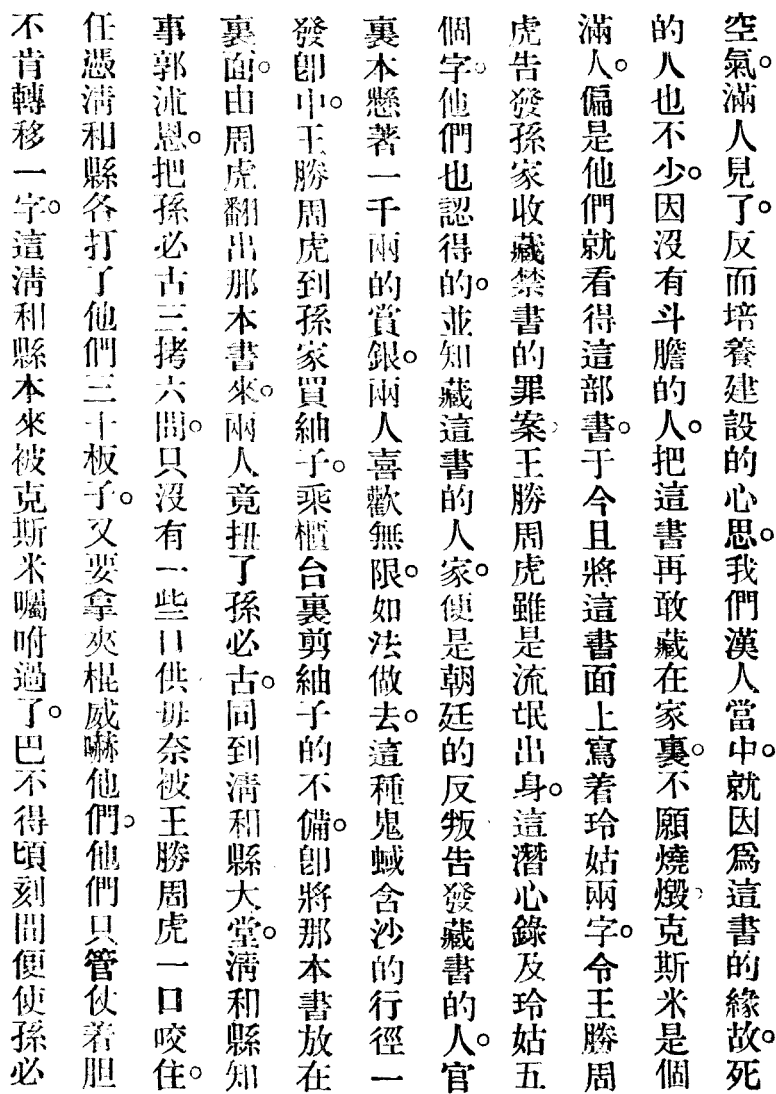 空氣。滿人見了。反而培養建設的心思。我們漢人當中。就因爲這書的緣故。死
的人也不少。因沒有斗膽的人。把這書再敢藏在家裏。不願燒燬、克斯米是個
滿人。偏是他們就看得這部書。于今且將這書面上寫着玲姑兩字。令王勝周
虎告發孫家收藏禁書的罪案、王勝周虎雖是流氓出身。這潛心錄及玲姑五
個字。他們也認得的。並知藏這書的人家。便是朝廷的反叛告發藏書的人。官
裏本懸著一千兩的賞銀。兩人喜歡無限。如法做去。這種鬼蜮含沙的行徑一
發卽中。王勝周虎到孫家買紬子。乘櫃台裏剪紬子的不備。卽將那本書放在
裏面。由周虎翻出那本書來。兩人竟扭了孫必古。同到淸和縣大堂。淸和縣知
事郭沭恩。把孫必古三拷六問。只沒有一些口供毋奈被王勝周虎一口咬住。
任憑淸和縣各打了他們三十板子。又要拿夾棍威嚇他們。他們只管仗着胆
不肯轉移一字。這淸和縣本來被克斯米囑咐過了。巴不得頃刻間便使孫必